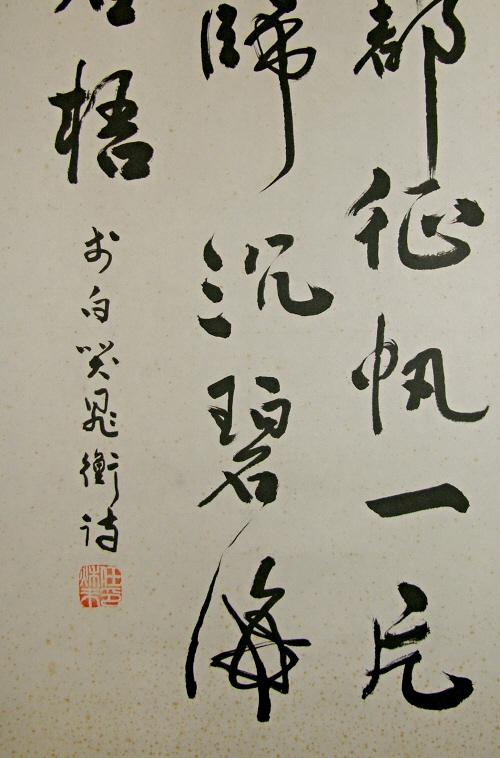 都征帆一片
歸沉碧海
梧
李白哭晁衡詩